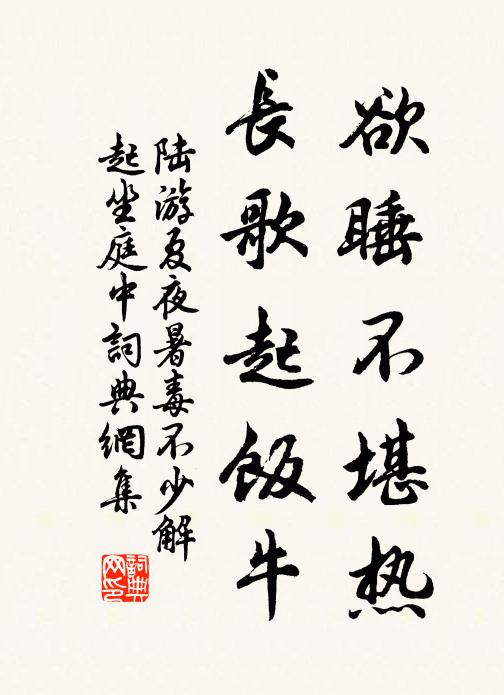 欲睡不堪热
長歌起飯牛
陆游夏夜暑毒不少解
起坐庭中詞典網集
詞典
网印